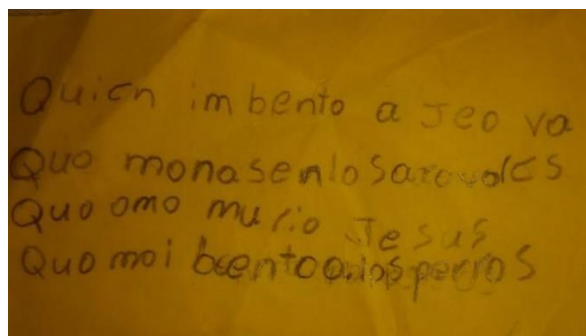 Quien imbento a Jeo va
Quo monasenlosarovoles
Quo omo murio Jesus
Quo moi bento a los perros